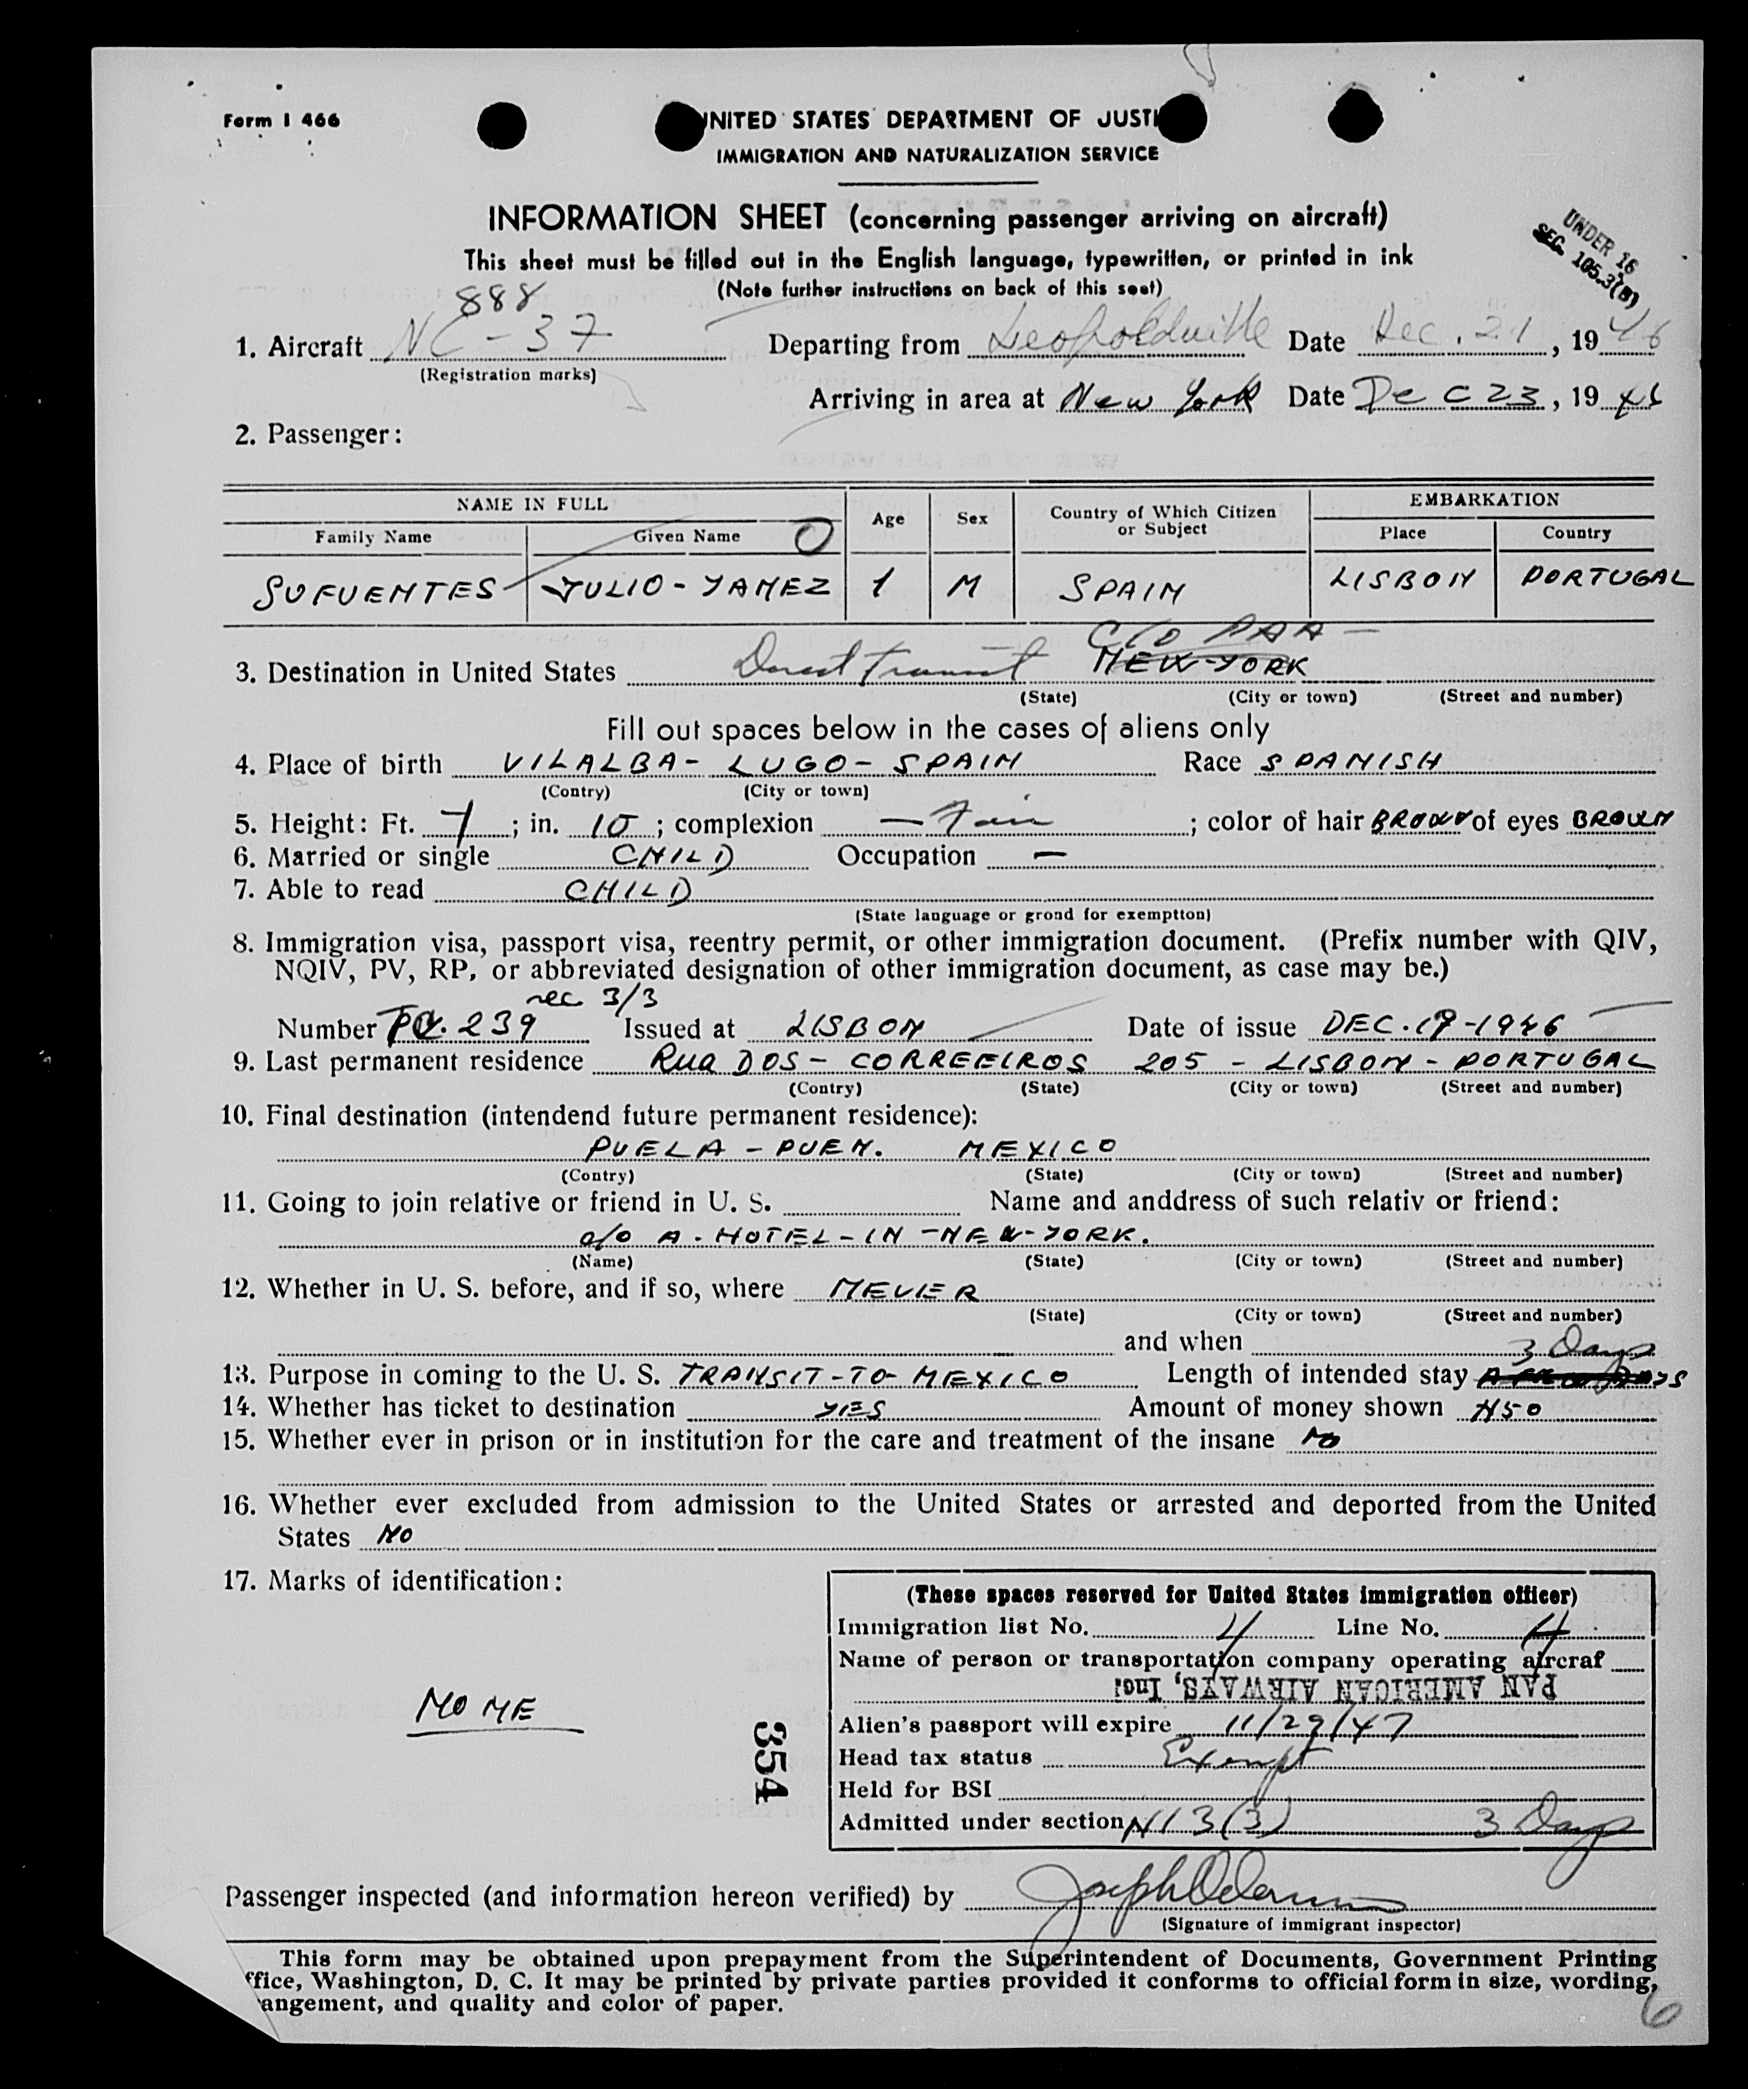 Form I 466
UNITED STATES DEPARTMENT OF JUSTI
IMMIGRATION AND NATURALIZATION SERVICE
INFORMATION SHEET (concerning passenger arriving on aircraft)
UNDER 16
SEC. 105.3(B)
This sheet must be filled out in the English language, typewritten, or printed in ink
(Note further instructions on back of this seet)
888
1. Aircraft NC-37 Departing from Leopoldville Date Dec. 21, 1946
(Registration marks)
Arriving in area at New York Date Dec 23, 1946
2. Passenger:
NAME IN FULL Age Sex Country of Which Citizen or Subject EMBARKATION
Family Name Given Name O Place Country
SUFUENTES JULIO-YANEZ 1 M SPAIN LISBON PORTUGAL
C/O PAA -
3. Destination in United States Direct transit NEW-YORK
(State) (City or town) (Street and number)
Fill out spaces below in the cases of aliens only
4. Place of birth VILALBA- LUGO- SPAIN Race SPANISH
(Contry) (City or town)
5. Height: Ft. 7; in. 10; complexion - Fair; color of hair BROWN of eyes BROWN
6. Married or single CHILD Occupation —
7. Able to read CHILD
(State language or grond for exemptton)
8. Immigration visa, passport visa, reentry permit, or other immigration document. (Prefix number with QIV,
NQIV, PV, RP, or abbreviated designation of other immigration document, as case may be.)
rec 3/3
Number 239 Issued at LISBON Date of issue DEC.19-1946
9. Last permanent residence Rua DOS- CORREEIROS 205 - LISBON - PORTUGAL
(Contry) (State) (City or town) (Street and number)
10. Final destination (intendend future permanent residence):
PUELA - PUEN. MEXICO
(Contry) (State) (City or town) (Street and number)
11. Going to join relative or friend in U. S. Name and anddress of such relativ or friend:
c/o A. HOTEL-IN-NEW-YORK.
(Name) (State) (City or town) (Street and number)
12. Whether in U. S. before, and if so, where NEVER
(State) (City or town) (Street and number)
and when
3 Days
13. Purpose in coming to the U. S. TRANSIT-TO-MEXICO Length of intended stay
14. Whether has ticket to destination YES Amount of money shown N50
15. Whether ever in prison or in institution for the care and treatment of the insane No
16. Whether ever excluded from admission to the United States or arrested and deported from the United
States NO
17. Marks of identification:
NONE
354
(These spaces reserved for United States immigration officer)
Immigration list No. 4 Line No. 4
Name of person or transportation company operating aircraf
PAN AMERICAN AIRWAYS, Inc.
Alien's passport will expire 11/29/47
Head tax status Exempt
Held for BSI
Admitted under section N13(3) 3 Days
Passenger inspected (and information hereon verified) by Joseph
(Signature of immigrant inspector)
This form may be obtained upon prepayment from the Superintendent of Documents, Government Printing
ffice, Washington, D. C. It may be printed by private parties provided it conforms to official form in size, wording,
angement, and quality and color of paper.
6